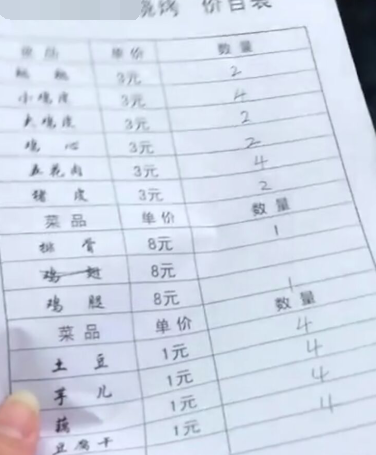 烧烤 价目表
菜品 单价 数量
3元 2
小鸡皮 3元 4
大鸡皮 3元 2
鸡心 3元 2
五花肉 3元 4
猪皮 3元 2
菜品 单价 数量
排骨 8元 1
鸡翅 8元
鸡腿 8元 1
菜品 单价 数量
土豆 1元 4
芋儿 1元 4
藕 1元 4
豆腐干 1元 4